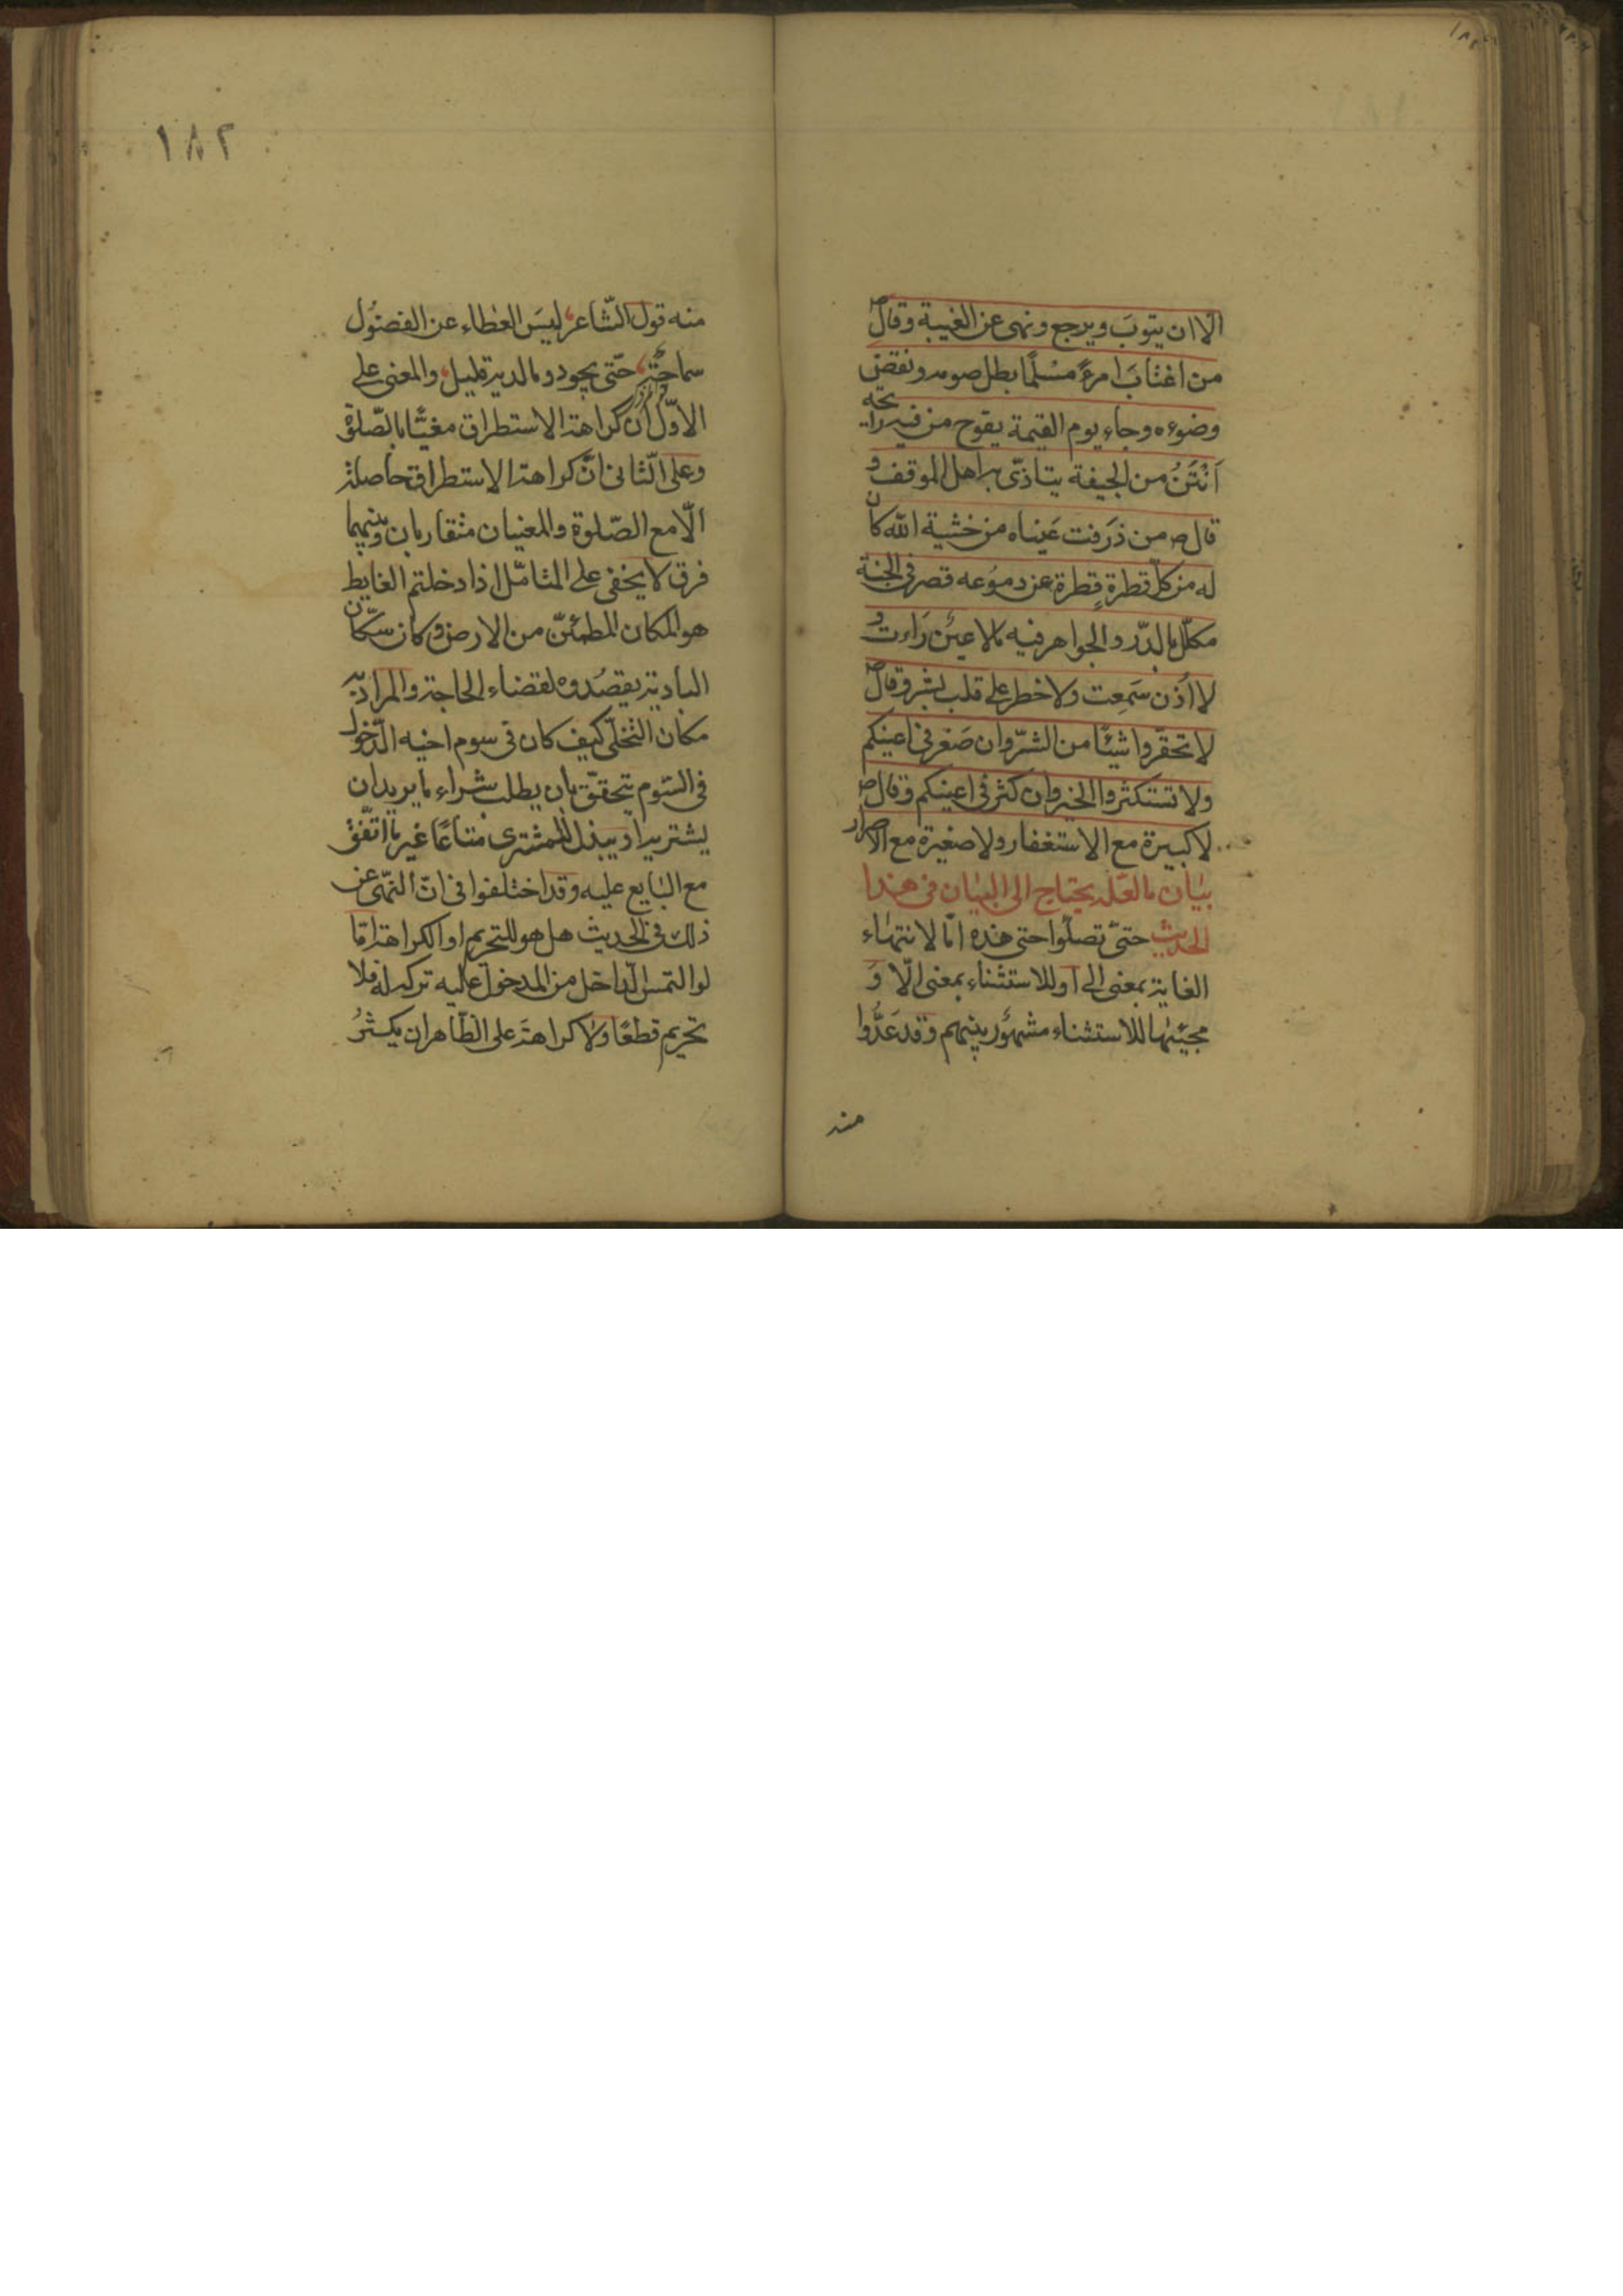 الا ان يتوبَ ويرجع ونهى عن الغيبة وقال ص
من اغتابَ امرءً مسْلمًا بطل صومه ونقض
وضوءه وجاء يوم القيمة يفوح من فيه رايحة
اَنْتَنُ من الجيفة يتاذّى به اهل الموقف و
قال ص من ذرَفت عَيناه من خشية الله كان
له من كلّ قطرةٍ قطرة عن دموُعه قصر فى الجنة
مكلّل بالدّر والجواهر فيه مالا عينٌ رَاءت و
لا اُذن سَمِعت ولا خطر على قلب بشر وقال ص
لا تحقّروا شيئًا من الشرّ وان صَغر فى اعينكم
ولا تستكثروا الخير وان كثر فى اعينكم وقال ص
لا كبيرة مع الاستغفار ولا صغيرة مع الاصرار
بيان ما لعلّه يحتاج الى البيان فى هذا
الحديث حتىّ تصلّوا حتى هذه امّا لانتهاء
الغاية بمعنى الى او للاستثناء بمعنى الّا وَ
مجيئها للاستثناء مشهوُر بينهم وقد عَدُّوا
منه
١٨٢
منه قول الشّاعر ليسَ العطاء عن الفضوُل
سماحةً حتّى يجود وما لديه قليل والمعنى على
الاوّل انّ كراهة الاستطراق مغيّا بالصّلوة
وعلى الثّانى انّ كراهة الاستطراق حاصلة
الّا مع الصّلوة والمعنيان متقاربان وبينهما
فرق لا يخفى على المتامّل اذا دخلتم الغايط
هو المكان المطمئنّ من الارض وكان سكّان
البادية يقصُدوه لقضاء الحاجة والمراد به
مكان التخلّى كيف كان فى سوم اخيه الدّخول
فى السّوم يتحقّق بان يطلب شراء ما يريد ان
يشتريه او يبذل للمشترى متاعًا غير ما اتّفق
مع البايع عليه وقد اختلفوا فى انّ النّهى عن
ذلك فى الحديث هل هو للتحريم او الكراهة امّا
لو التمس الدّاخل من المدخول عليه تركه له فلا
تحريم قطعًا وَلا كراهةَ على الظّاهر ان يكثرُ